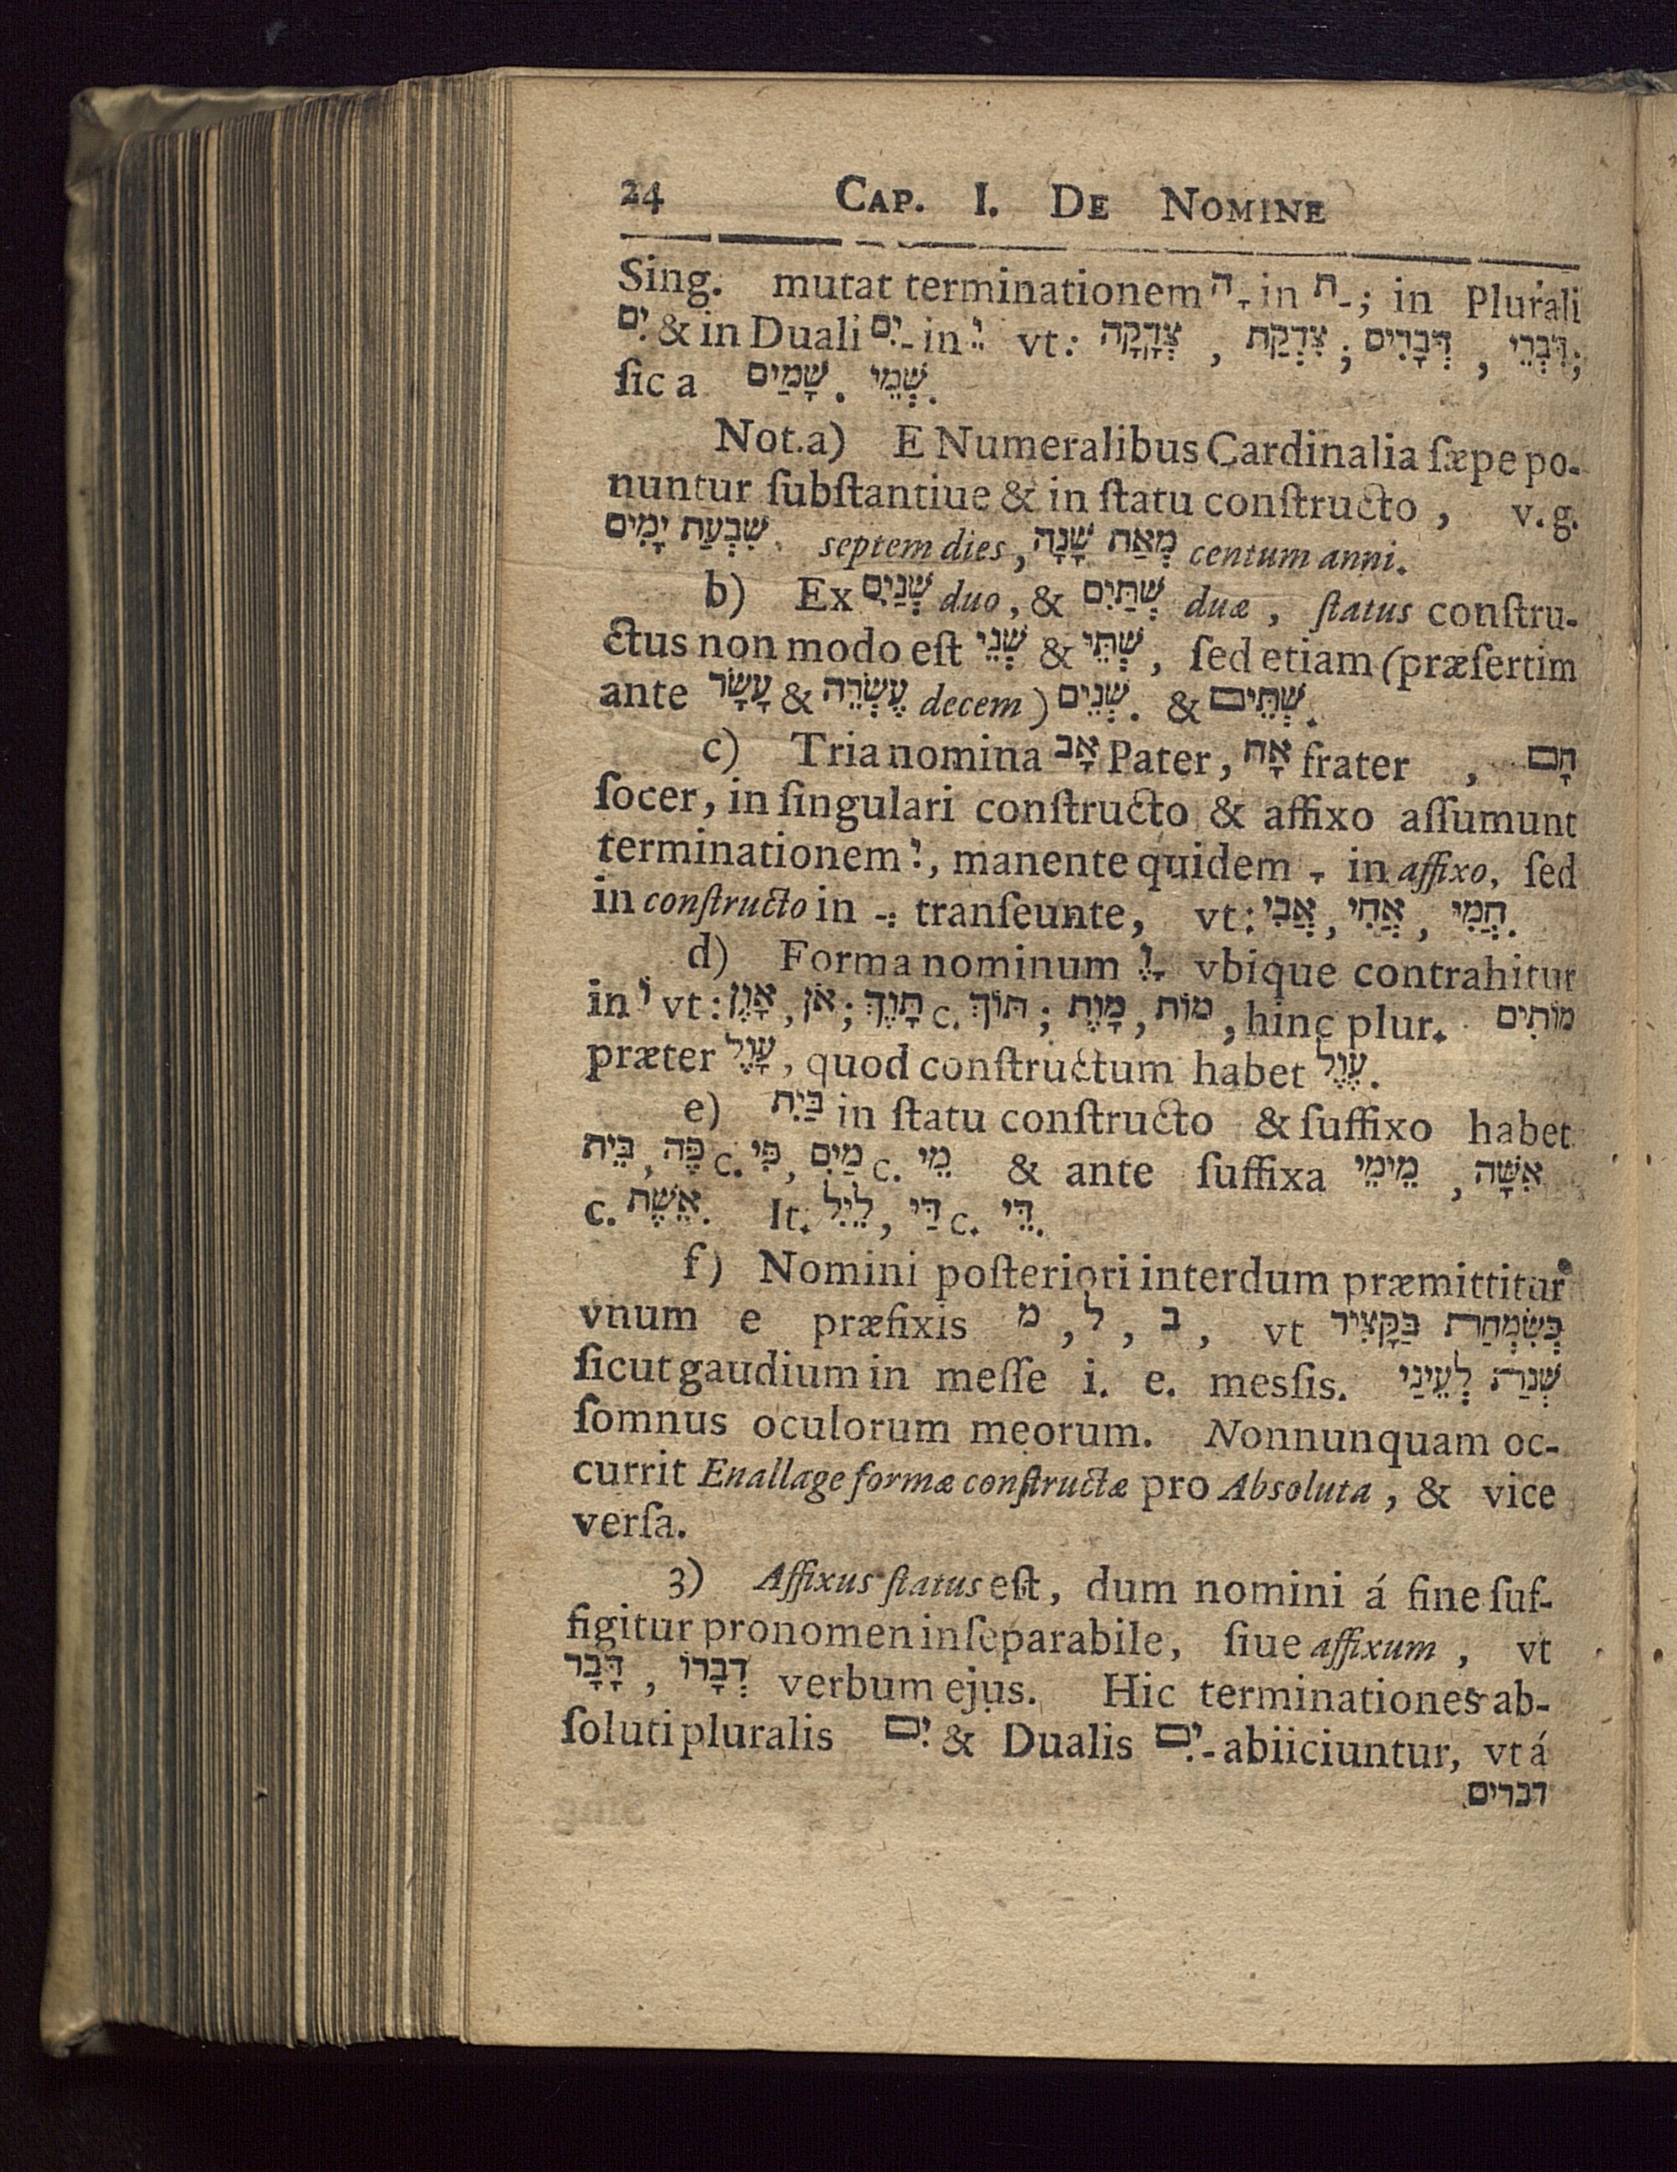 24 CAP. I. DE NOMINE
Sing. mutat terminationem הָ in תַ ; in Plurali
ִים & in Duali ַיִם in ֵי vt: צְדָקָה , צִדְקַת ; דְּבָרִים , דִּבְרֵי ;
ſic a שָׁמַיִם . שְׁמֵי .
Not. a) E Numeralibus Cardinalia ſæpe po-
nuntur ſubſtantiue & in ſtatu conſtructo , v. g.
שִׁבְעַת יָמִים septem dies , מְאַת שָׁנָה centum anni.
b) Ex שְׁנַיִם duo , & שְׁתַּיִם duæ , ſtatus conſtru-
ctus non modo eſt שְׁנֵי & שְׁתֵּי , ſed etiam (præſertim
ante עָשָׂר & עֶשְׂרֵה decem ) שְׁנֵים . & שְׁתֵּים .
c) Tria nomina אָב Pater , אָח frater , חָם
ſocer , in ſingulari conſtructo & affixo aſſumunt
terminationem ִי , manente quidem ָ in affixo, ſed
in conſtructo in ֲ tranſeunte, vt: אֲבִי , אֲחִי , חֲמִי .
d) Forma nominum ָוֶ vbique contrahitur
in וֹ vt: אָוֶן , אֹן ; תָּוֶךְ c. תּוֹךְ ; מָוֶת , מוֹת , hinc plur. מוֹתִים
præter עָוֶל , quod conſtructum habet עֶוֶל .
e) בַּיִת in ſtatu conſtructo & ſuffixo habet
בֵּית , פֶּה c. פִּי , מַיִם c. מֵי & ante ſuffixa מֵימֵי , אִשָּׁה
c. אֵשֶׁת . It. לֵיל , דַּי c. דֵּי .
f) Nomini poſteriori interdum præmittitur
vnum e præfixis מ , ל , ב , vt בְּשִׂמְחַת בַּקָּצִיר
ſicut gaudium in meſſe i. e. mesſis. שְׁנַת לְעֵינַי
ſomnus oculorum meorum. Nonnunquam oc-
currit Enallage formæ conſtructæ pro Abſoluta , & vice
verſa.
3) Affixus ſtatus eſt , dum nomini á fine ſuf-
figitur pronomen inſeparabile, ſiue affixum , vt
דָּבָר , דְבָרוֹ verbum ejus. Hic terminationes ab-
ſoluti pluralis ִים & Dualis ַיִם abiiciuntur, vt á
דברים